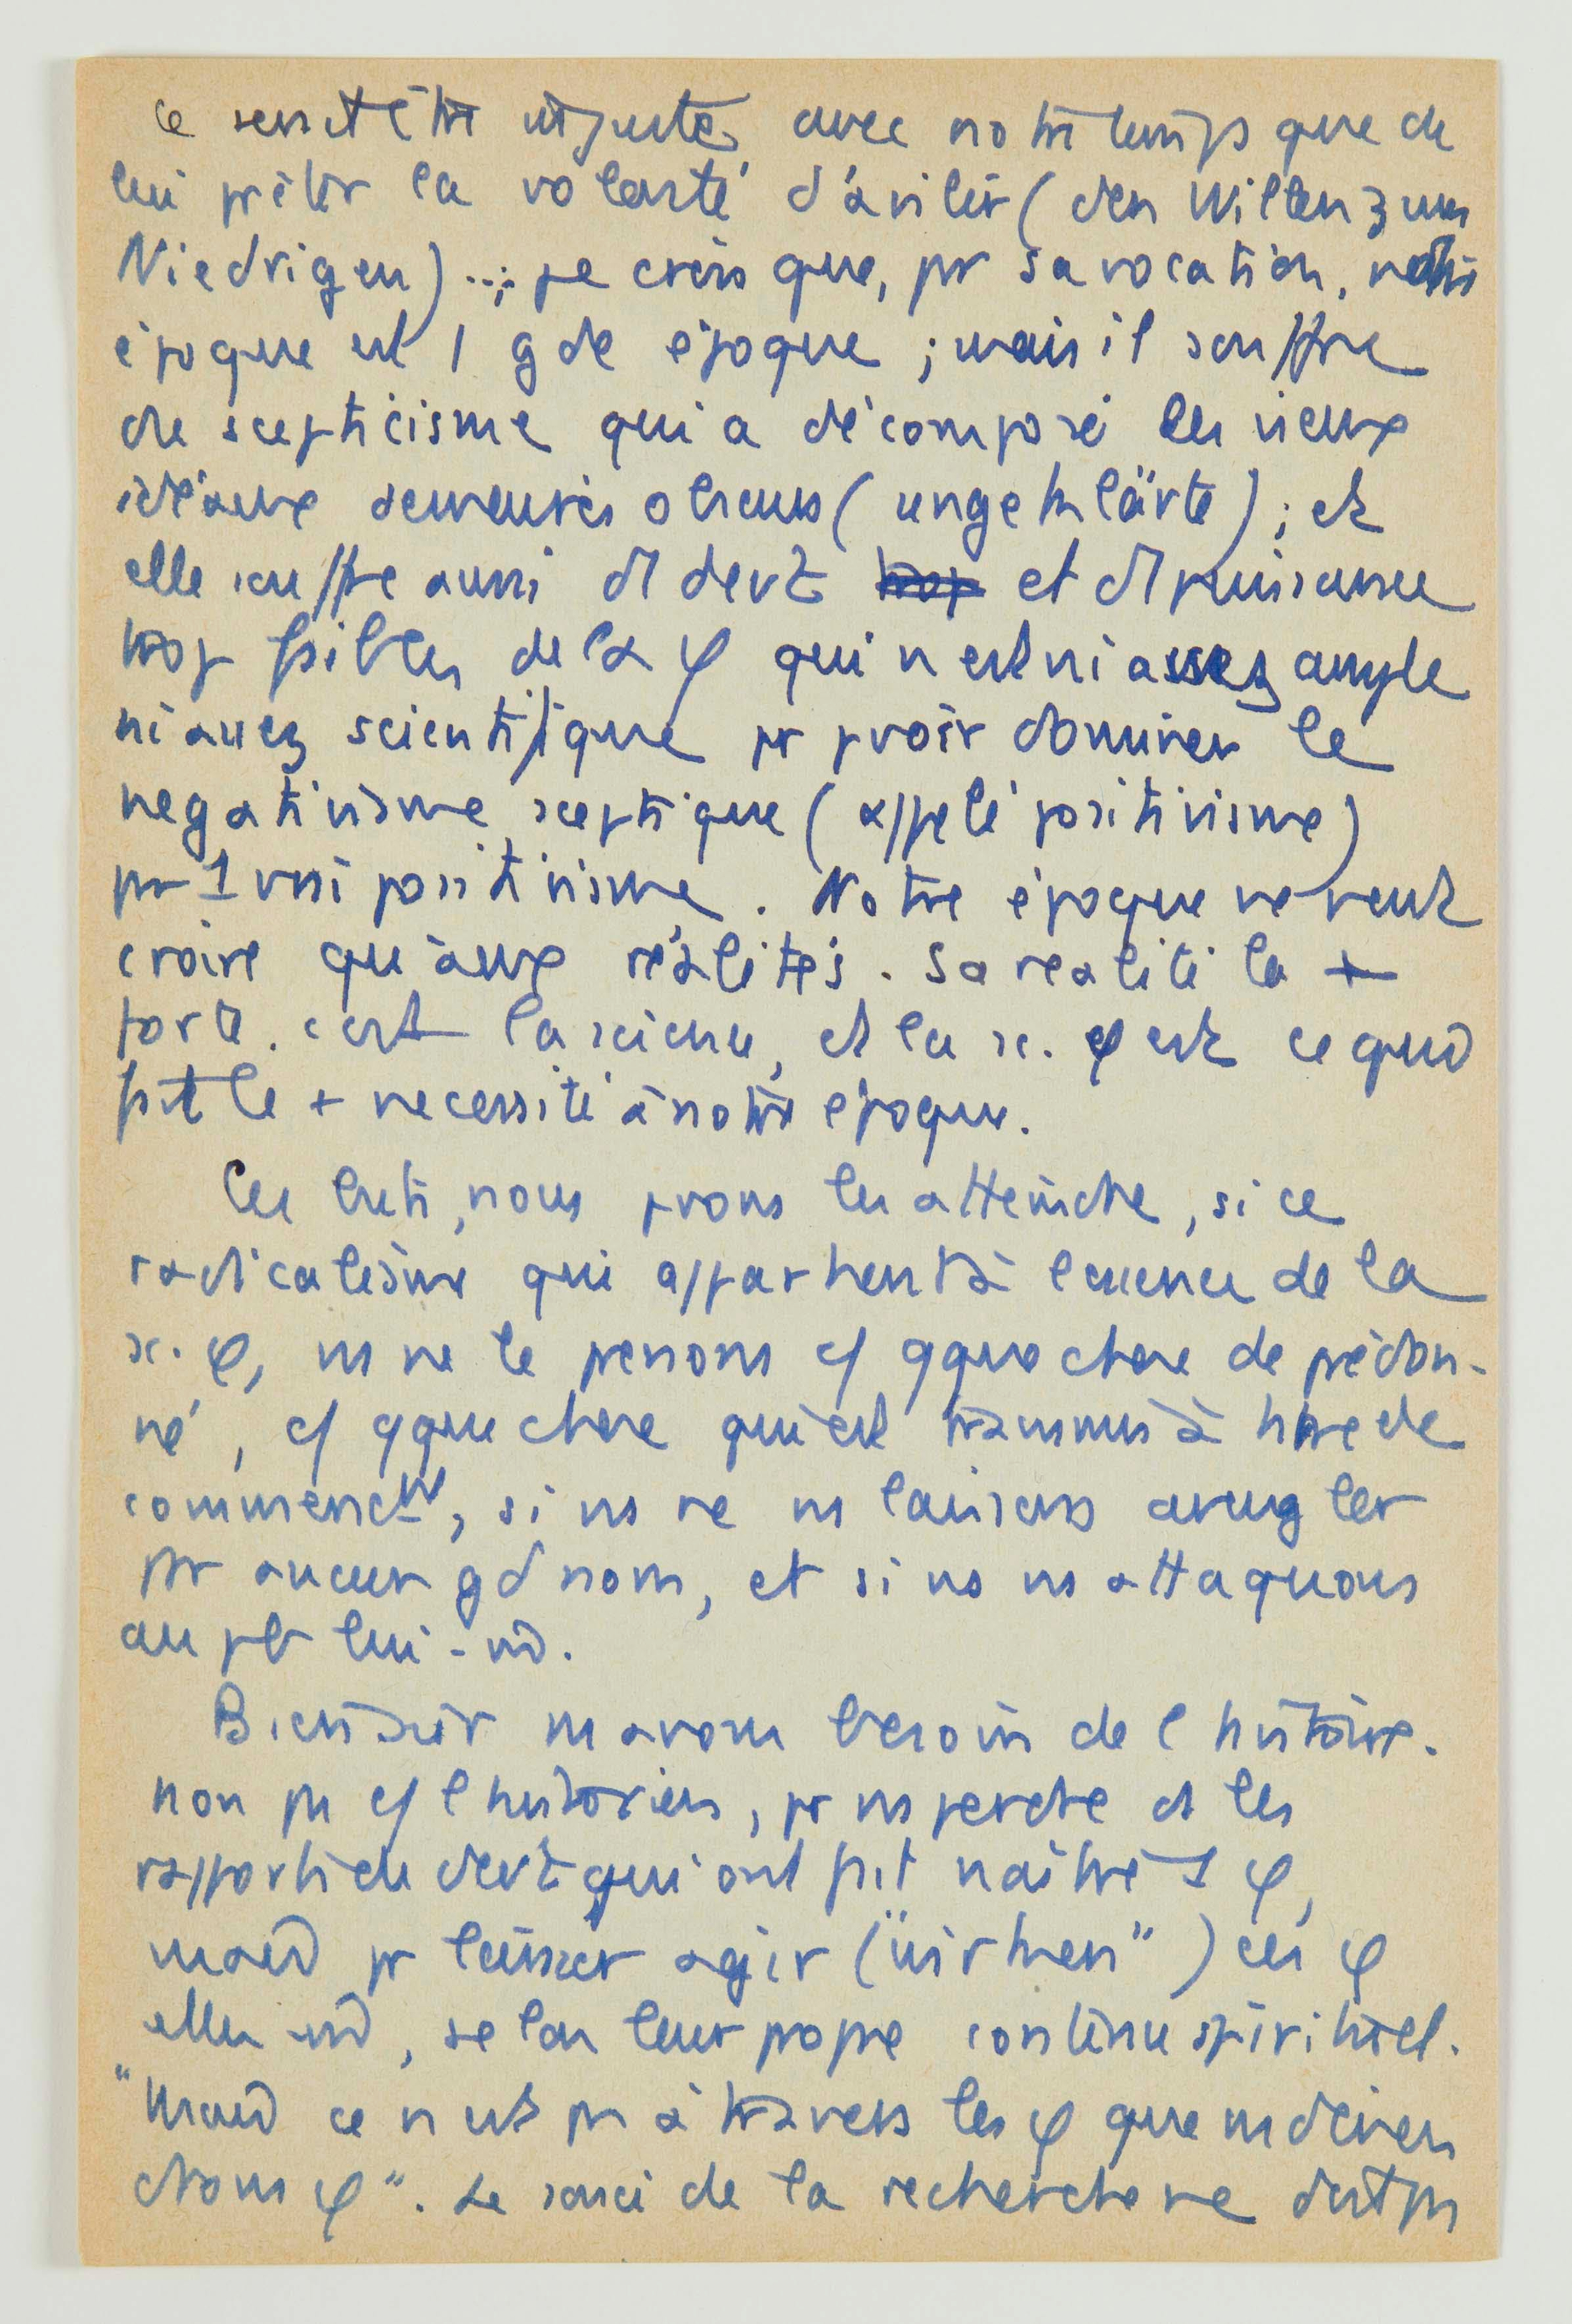 Ce serait être injuste avec notre temps que de
lui prêter la volonté d'avilir (den Willen zum
Niedrigen) ..; je crois que, pr sa vocation, notre
époque est 1 gde époque ; mais il souffre
de scepticisme qui a décomposé les vieux
idéaux demeurés obscurs (ungeklärte) ; et
elle souffre aussi du devt et d puissance
trop faibles de la φ qui n'est ni assez ample
ni assez scientifique pr pvoir dominer le
negativisme sceptique (appelé positivisme)
pr 1 vrai positivisme. Notre époque ne veut
croire qu'aux réalités. Sa realité la +
forte. c'est la science, et la sc. φ est ce qui
fait le + necessité à notre époque.
Ces buts, nous pvons les atteindre, si ce
radicalisme qui appartient à l'essence de la
sc. φ, ns ne le prenons c/ qque chose de prédon-
né, c/ qque chose qui est transmis à titre de
commenct, si ns ne ns laissons aveugler
par aucun gd nom, et si ns ns attaquons
au pb lui-m̂.
Bien sûr ns avons besoin de l'histoire.
non ps c/ l'historien, pr ns perdre ds les
rapports de devt qui ont fait naître 1 φ,
mais pr laisser agir ("wirken") ces φ
elles m̂, selon leur propre contenu spirituel.
"Mais ce n'est ps à travers les φ que ns deven
drons φ". Le souci de la recherche ne doit ps